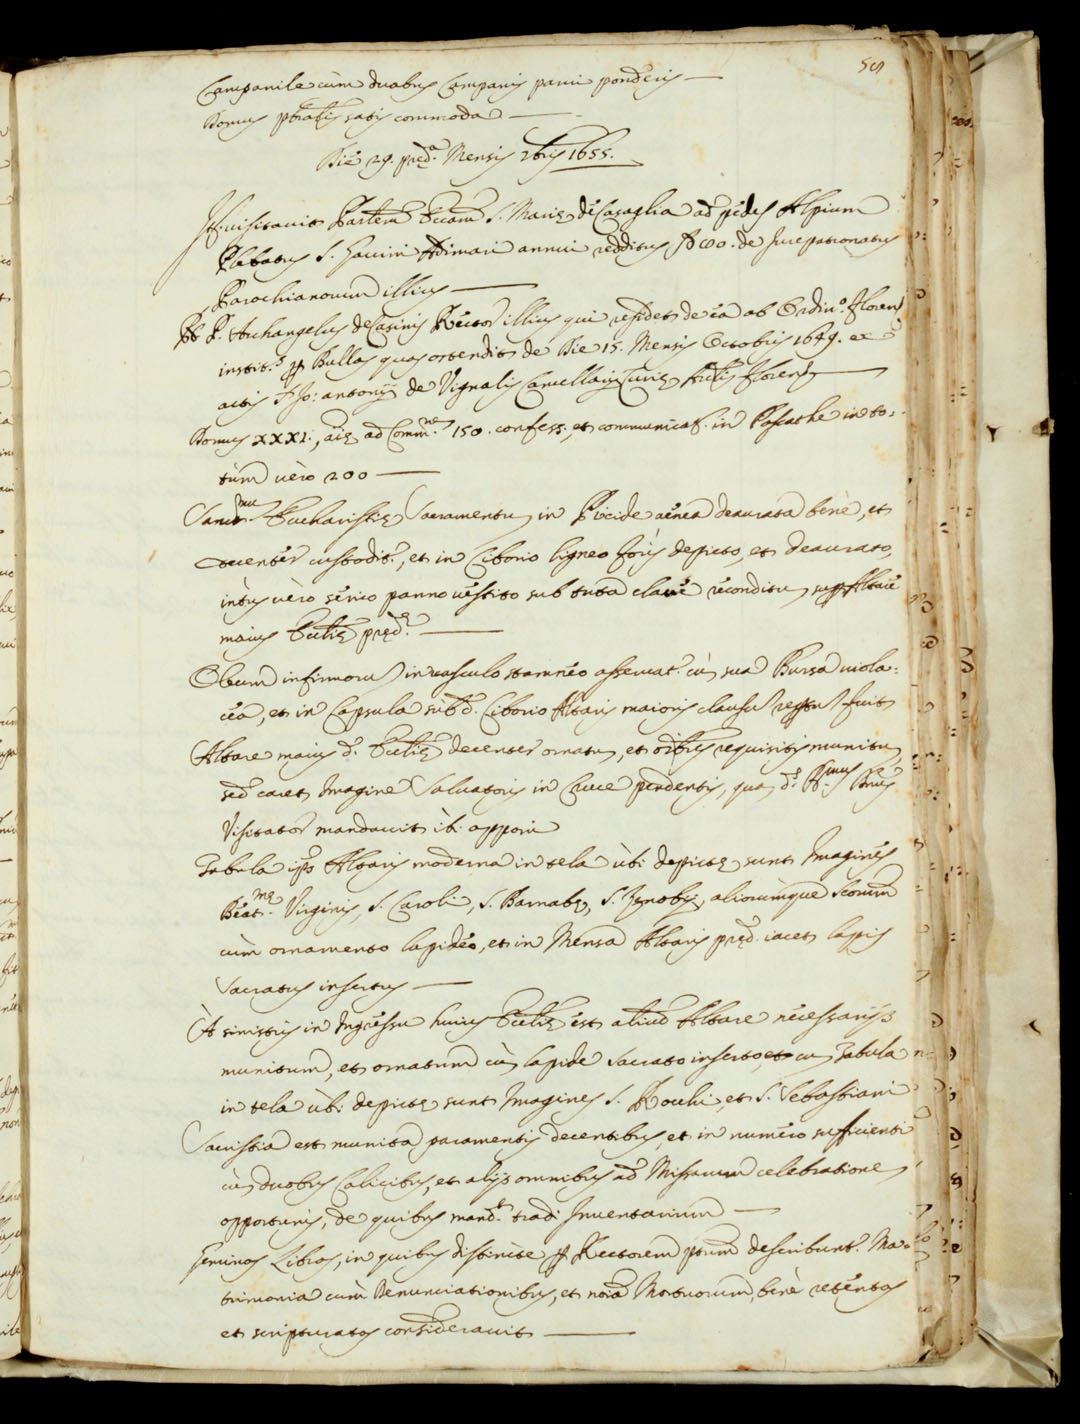 59
Campanile cum duabus Campanis parui ponderis
Domus pbratis satis commoda
Die 29. pred.ᵃ Mensis 9bris 1655.
visitauit Parlem Eccam S. Marie de Casaglia ad pedes Alpium
Plebatus S. Gauini Adimari annui redditus de Jurepatronatus
Parochianorum illius
P. Archangelus de Casinis Rector illius qui residet de ea ab Ordin.º Floren.
instit.s p Bullas quas ostendit de Die 15. Mensis Octobris 1649. ex
actis Jo: antonij de Vignalis Cancellarij Curie Archis Floren.
Domus XXXI., aie ad Comm.ne 150. confess., et communicat. in Paschate in to-
tum vero 200
Sanct.mu Eucharistie Sacramentu in Pixide aenea deaurata bene, et
decenter custodit.r, et in Ciborio ligneo foris depicto, et deaurato,
intus vero serico panno vestito sub tuta claue reconditu sup Altare
maius Ecclie pred.e
Oleum infirmoru in vasculo stamneo asseruat.r cu sua Bursa viola-
cea, et in Capsula sub d. Ciborio Altaris maioris clausu reptu fuit
Altare maius d. Ecclie decenter ornatu, et oibus requisitis munitu
sed caret Imagine Saluatoris in Cruce pendentis, qua d.s R.mus Dnus
Visitator mandauit ibi apponi
Tabula ips Altaris moderna in tela ubi depicte sunt Imagines
Beat.me Virginis, S. Caroli, S. Barnabe, S. Zenobij, aliorumque Storum
cum ornamento lapideo, et in Mensa Altaris pred. iacet lapis
Sacratus insertus
A sinistris in Ingressu huius Ecclie est aliud Altare necessarijs
munitum, et ornatum cu lapide Sacrato inserto, et cu Tabula
in tela ubi depicte sunt Imagines S. Rochi, et S. Sebastiani
Sacristia est munita paramentis decentibus, et in numero sufficienti
cu duobus Calicibus, et alijs omnibus ad Missarum celebratione
opportunis, de quibus mand.t tradi Inuentarium
Geminos Libros, in quibus distincte p Rectorem ptum describunt.r Ma-
trimonia cum Denunciationibus, et noia Mortuorum, bene retentos
et scripturatos considerauit